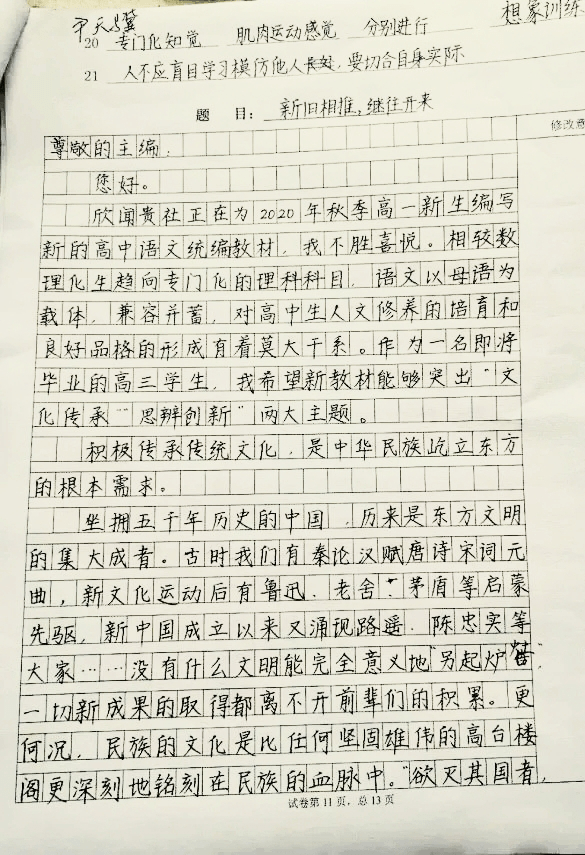 尹天骥
20 专门化知觉 肌肉运动感觉 分别进行 想象训练
21 人不应盲目学习模仿他人长处，要切合自身实际
题 目：新旧相推，继往开来
修改意
尊敬的主编，
您好。
欣闻贵社正在为2020年秋季高一新生编写
新的高中语文统编教材，我不胜喜悦。相较数
理化生趋向专门化的理科科目，语文以母语为
载体，兼容并蓄，对高中生人文修养的培育和
良好品格的形成有着莫大干系。作为一名即将
毕业的高三学生，我希望新教材能够突出“文
化传承”“思辨创新”两大主题。
积极传承传统文化，是中华民族屹立东方
的根本需求。
坐拥五千年历史的中国，历来是东方文明
的集大成者。古时我们有秦论汉赋唐诗宋词元
曲，新文化运动后有鲁迅、老舍、茅盾等启蒙
先驱，新中国成立以来又涌现路遥、陈忠实等
大家……没有什么文明能完全意义地“另起炉灶”，
一切新成果的取得都离不开前辈们的积累。更
何况，民族的文化是比任何坚固雄伟的高台楼
阁更深刻地铭刻在民族的血脉中。“欲灭其国者，
试卷第11页，总13页